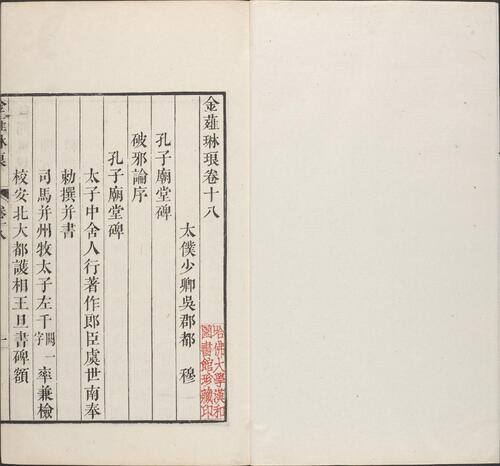 金薤琳琅卷十八
太僕少卿吳郡都穆
孔子廟堂碑
破邪論序
孔子廟堂碑
太子中舍人行著作郎臣虞世南奉
勅撰并書
司馬并州牧太子左千闕一字率兼檢
校安北大都護相王旦書碑額
金薤琳琅
卷十八
一
哈佛大學漢和
圖書館珍藏印